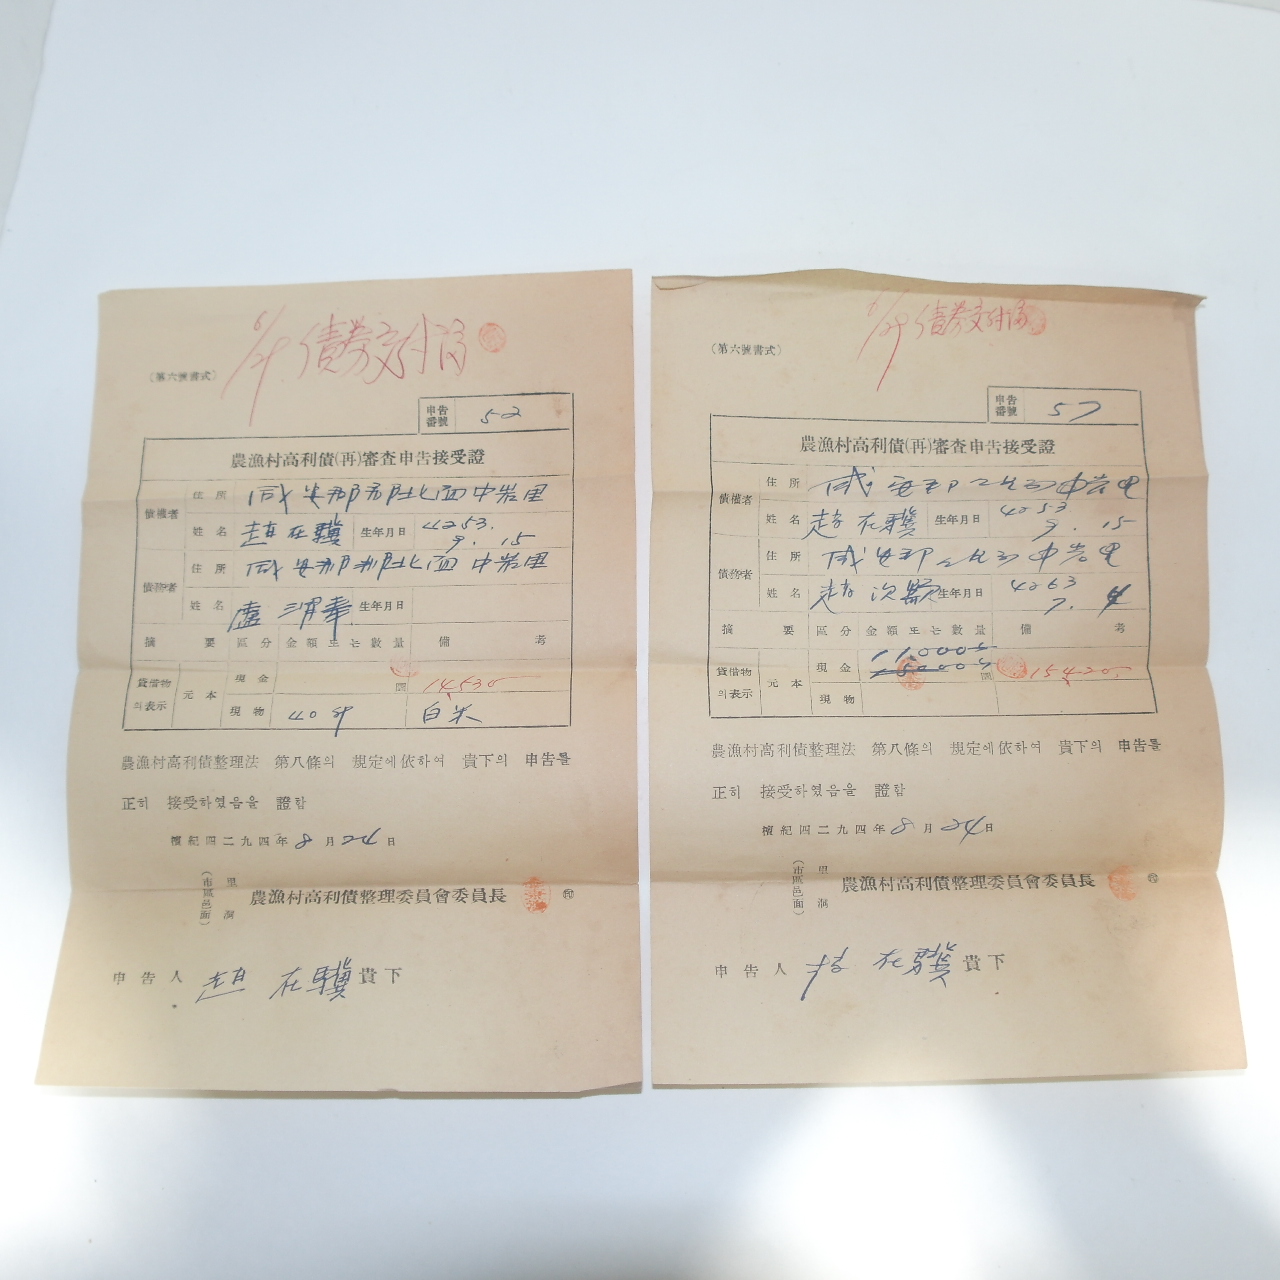 6/29 債券交付濟
(第六號書式)
申告番號 52
農漁村高利債(再)審査申告接受證
債權者 住所 咸安郡郡北面中岩里
姓名 趙在驥 生年月日 4253. 9. 15
債務者 住所 咸安郡郡北面中岩里
姓名 盧 生年月日
摘要 區分 金額또는數量 備考
貸借物의表示 元本 現金 圜 14530
現物 40 白米
農漁村高利債整理法 第八條의 規定에依하여 貴下의 申告를
正히 接受하였음을 證함
檀紀四二九四年 8月 24日
(市區邑面) 里洞 農漁村高利債整理委員會委員長 ㊞
申告人 趙在驥 貴下
6/29 債券交付濟
(第六號書式)
申告番號 57
農漁村高利債(再)審査申告接受證
債權者 住所 咸安郡 中岩里
姓名 趙在驥 生年月日 4253 9. 15
債務者 住所 咸安郡 中岩里
姓名 趙次 生年月日 4263 7. 4
摘要 區分 金額또는數量 備考
貸借物의表示 元本 現金 11,000 15000 圜 15420
現物
農漁村高利債整理法 第八條의 規定에依하여 貴下의 申告를
正히 接受하였음을 證함
檀紀四二九四年 8月 24日
(市區邑面) 里洞 農漁村高利債整理委員會委員長 ㊞
申告人 在驥 貴下